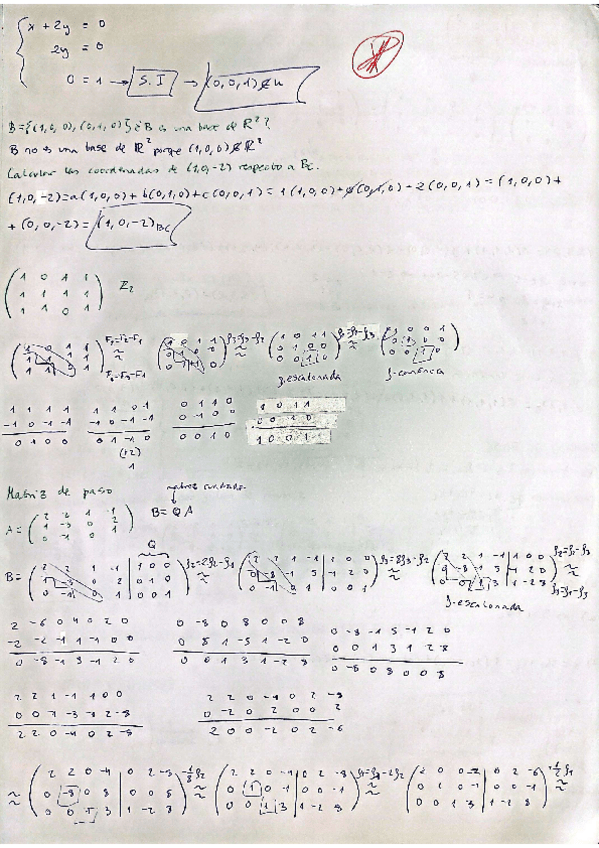 x + 2y = 0
2y = 0
0 = 1 → S.I → (0,0,1) ∉ U
B={(1,0,0),(0,1,0)} ¿B es una base de R²?
B no es una base de R² porque (1,0,0) ∉ R²
Calcular las coordenadas de (1,0,-2) respecto a Bc.
(1,0,-2)=a(1,0,0)+b(0,1,0)+c(0,0,1)=1(1,0,0)+0(0,1,0)-2(0,0,1)=(1,0,0)+
+(0,0,-2)=(1,0,-2)Bc
1 0 1 1
1 1 1 1 Z₂
1 1 0 1
F₂=F₂-F₁
F₃=F₃-F₁
1 0 1 1
0 1 0 0
1 0 0 1
0 1 0 0
f-escalonada
f-canónica
1 1 1 1
-1 0 -1 -1
0 1 0 0
1 1 0 1
-1 0 -1 -1
0 1 -1 0
(+2)
1
0 1 1 0
0 -1 0 0
0 0 1 0
1 0 1 1
0 0 1 0
1 0 0 1
Matriz de paso
B = Q A
A=
2 2 1 -1
1 -3 0 2
0 -1 0 1
Q
B=
2 2 1 -1 | 1 0 0
1 -3 0 2 | 0 1 0
0 -1 0 1 | 0 0 1
f₂=2f₂-f₁
2 2 1 -1 | 1 0 0
0 -8 -1 5 | -1 2 0
0 -1 0 1 | 0 0 1
f₃=8f₃-f₂
2 2 1 -1 | 1 0 0
0 -8 -1 5 | -1 2 0
0 0 1 3 | 1 -2 8
f-escalonada
2 -6 0 4 0 2 0
-2 -2 -1 1 -1 0 0
0 -8 -1 5 -1 2 0
0 -8 0 8 0 0 8
0 8 1 -5 1 -2 0
0 0 1 3 1 -2 8
0 -8 -1 5 -1 2 0
0 0 1 3 1 -2 8
0 -8 0 8 0 0 8
2 2 1 -1 1 0 0
0 0 -1 -3 -1 2 -8
2 2 0 -4 0 2 -8
2 2 0 -4 0 2 -8
0 -2 0 2 0 0 2
2 0 0 -2 0 2 -6
2 2 0 -4 | 0 2 -8
0 -8 0 8 | 0 0 8
0 0 1 3 | 1 -2 8
0 1 0 -1 | 0 0 -1
0 0 1 3 | 1 -2 8
2 0 0 -2 | 0 2 -6
0 1 0 -1 | 0 0 -1
0 0 1 3 | 1 -2 8